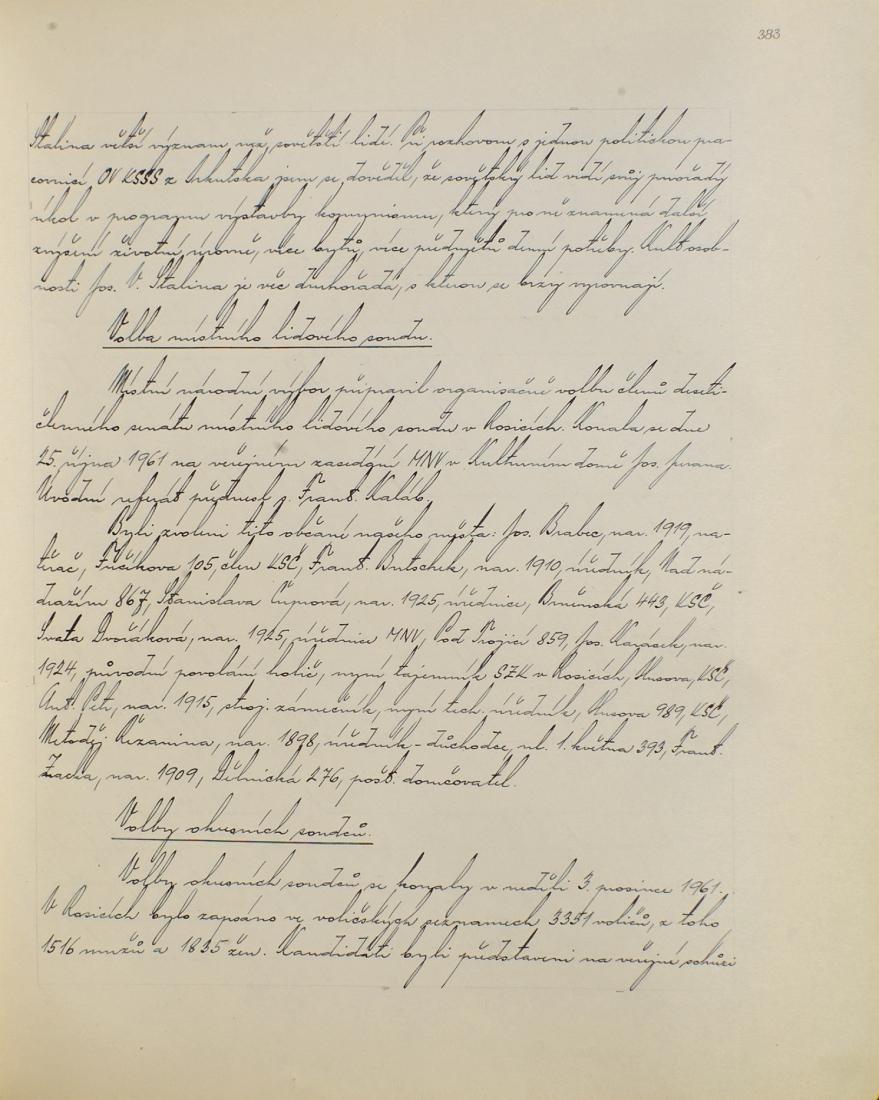 383
Stalina větší význam, než sovětští lidé. Při rozhovoru s jednou politickou pra-
covnicí OV KSSS z Irkutska jsem se dověděl, že sovětský lid vidí svůj prvořadý
úkol v programu výstavby komunismu, který pro ně znamená další
zvýšení životní úrovně, více bytů, více předmětů denní potřeby. Kult osob-
nosti Jos. V. Stalina je věc druhořadá, s kterou se brzy vyrovnají.
Volba místního lidového soudu.
Místní národní výbor připravil organisačně volbu členů deseti-
členného senátu místního lidového soudu v Rosicích. Konala se dne
25. října 1961 na veřejném zasedání MNV v Kulturním domě Jos.
Úvodní referát přednesl s. Frant. Kaláb.
Byli zvoleni tito občané našeho města: Jos. Brabec, nar. 1919, na-
těrač, Fučíkova 105, člen KSČ, Frant. Butschek, nar. 1910, úředník, Nad ná-
dražím 867, Stanislava Čuprová, nar. 1925, úřednice, Brněnská 443, KSČ,
Svata Dvořáková, nar. 1925, úřednice MNV, Pod Trojicí 859, Jos. Karásek, nar.
1924, původní povolání holič, nyní tajemník SZK v Rosicích, Husova, KSČ,
Ant. Petr, nar. 1915, stroj. zámečník, nyní tech. úředník, Husova 989, KSČ,
Metoděj Řezanina, nar. 1898, úředník - důchodce, ul. 1. května 393, Frant.
nar. 1909, Dělnická 276, pošt. doručovatel.
Volby okresních soudců.
Volby okresních soudců se konaly v neděli 3. prosince 1961.
V Rosicích bylo zapsáno ve voličských seznamech 3351 voličů, z toho
1516 mužů a 1835 žen. Kandidáti byli představeni na veřejné schůzi